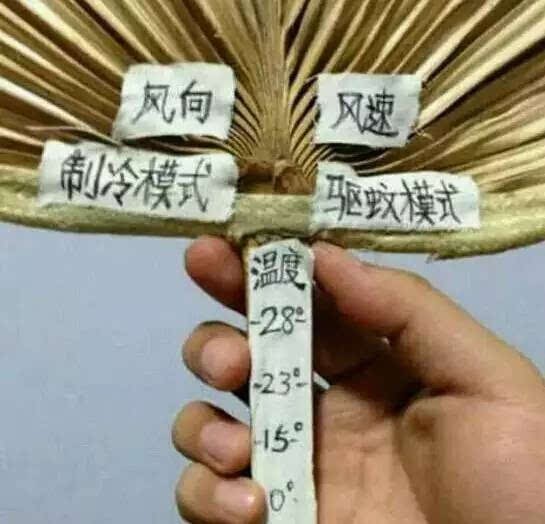 风向
风速
制冷模式
驱蚊模式
温度
-28°-
-23°-
-15-°
0°